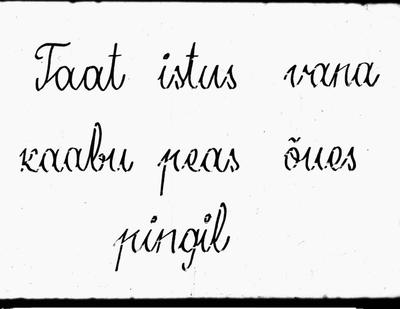 Taat istus vana
kaabu peas õues
pingil